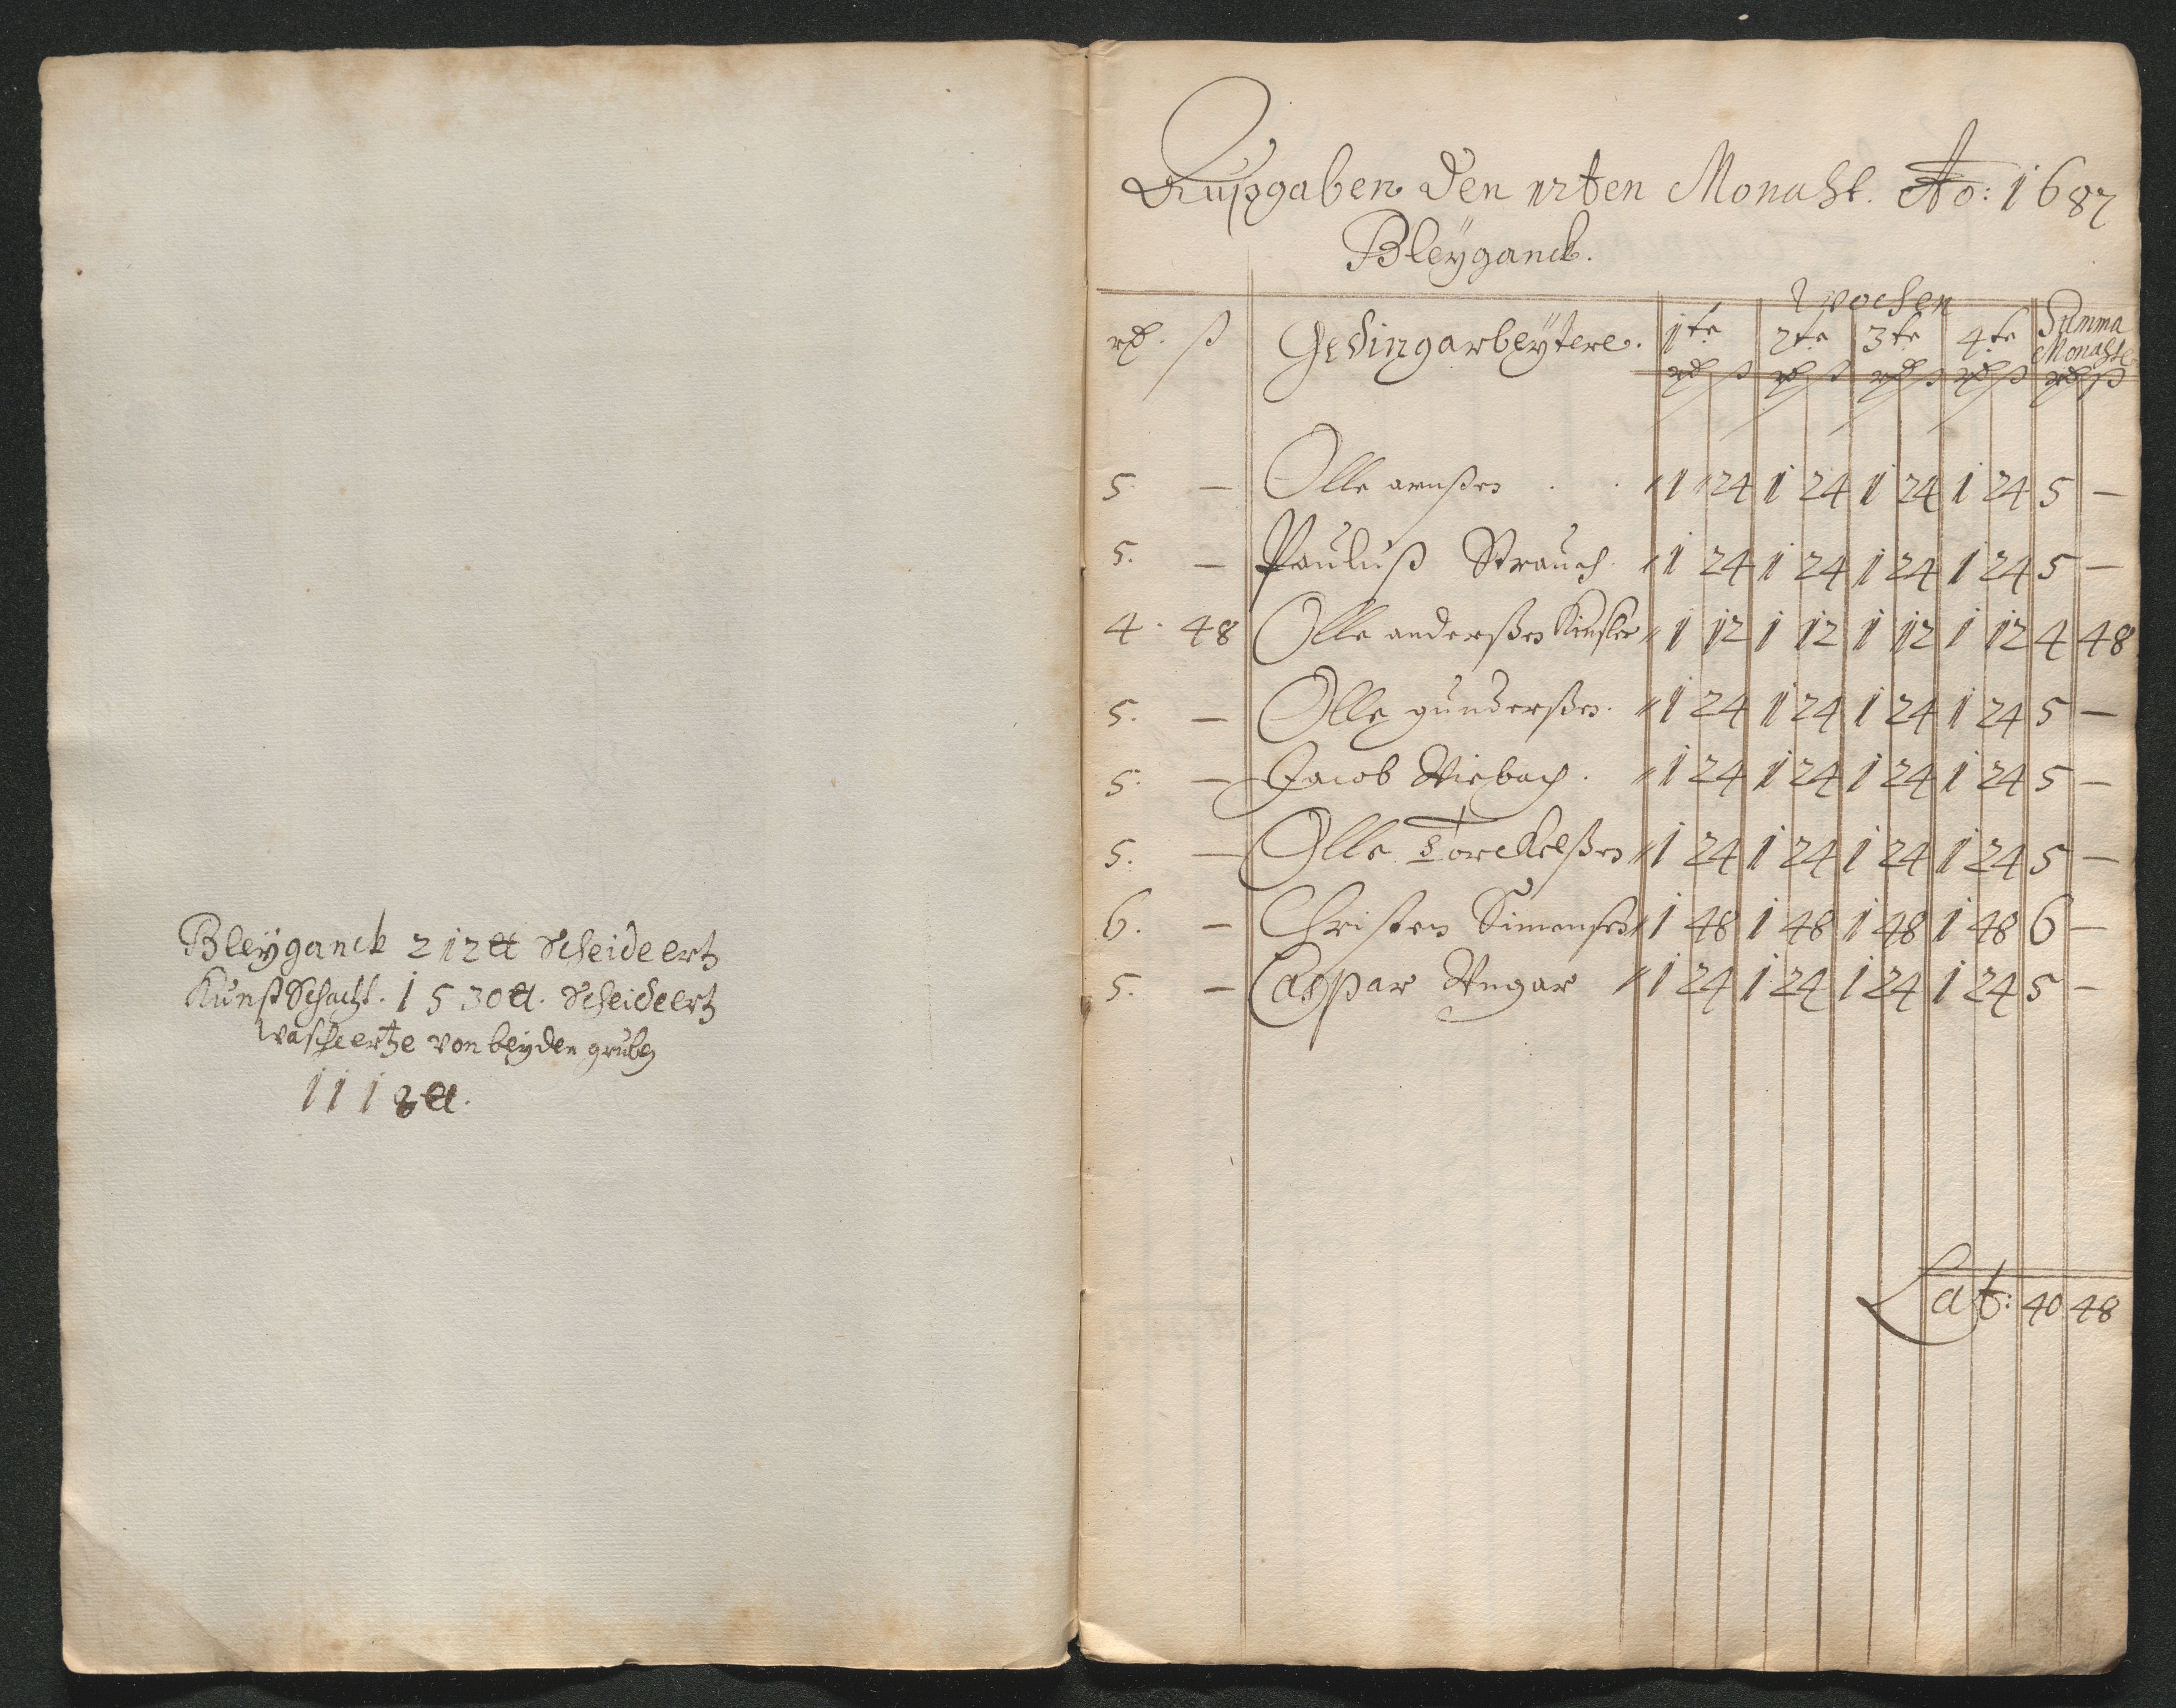 Bleyganck 212 ℔ Scheideertz
KunstSchacht. 1530 ℔. Scheideertz
Wascheertze von beyden grub
111 ℔.
Außgaben den 12ten Monaht. Ao: 1687
Bleÿganck.
Wochen
rd. ß Gedingarbeÿtere. 1te 2te 3te 4te Summa Monahtl
rd ß rd ß rd ß rd ß rd ß
5. — Olle arnßen 1 24 1 24 1 24 1 24 5 —
5. — Paulus Strauch. 1 24 1 24 1 24 1 24 5 —
4. 48 Olle anderßen 1 12 1 12 1 12 1 12 4 48
5. — Olle gunderßen. 1 24 1 24 1 24 1 24 5 —
5. — Jacob Viebach. 1 24 1 24 1 24 1 24 5 —
5. — Olle Torckelßen 1 24 1 24 1 24 1 24 5 —
6. — Christen Simensen 1 48 1 48 1 48 1 48 6 —
5. — Caspar Ungar 1 24 1 24 1 24 1 24 5 —
Lat: 40 48